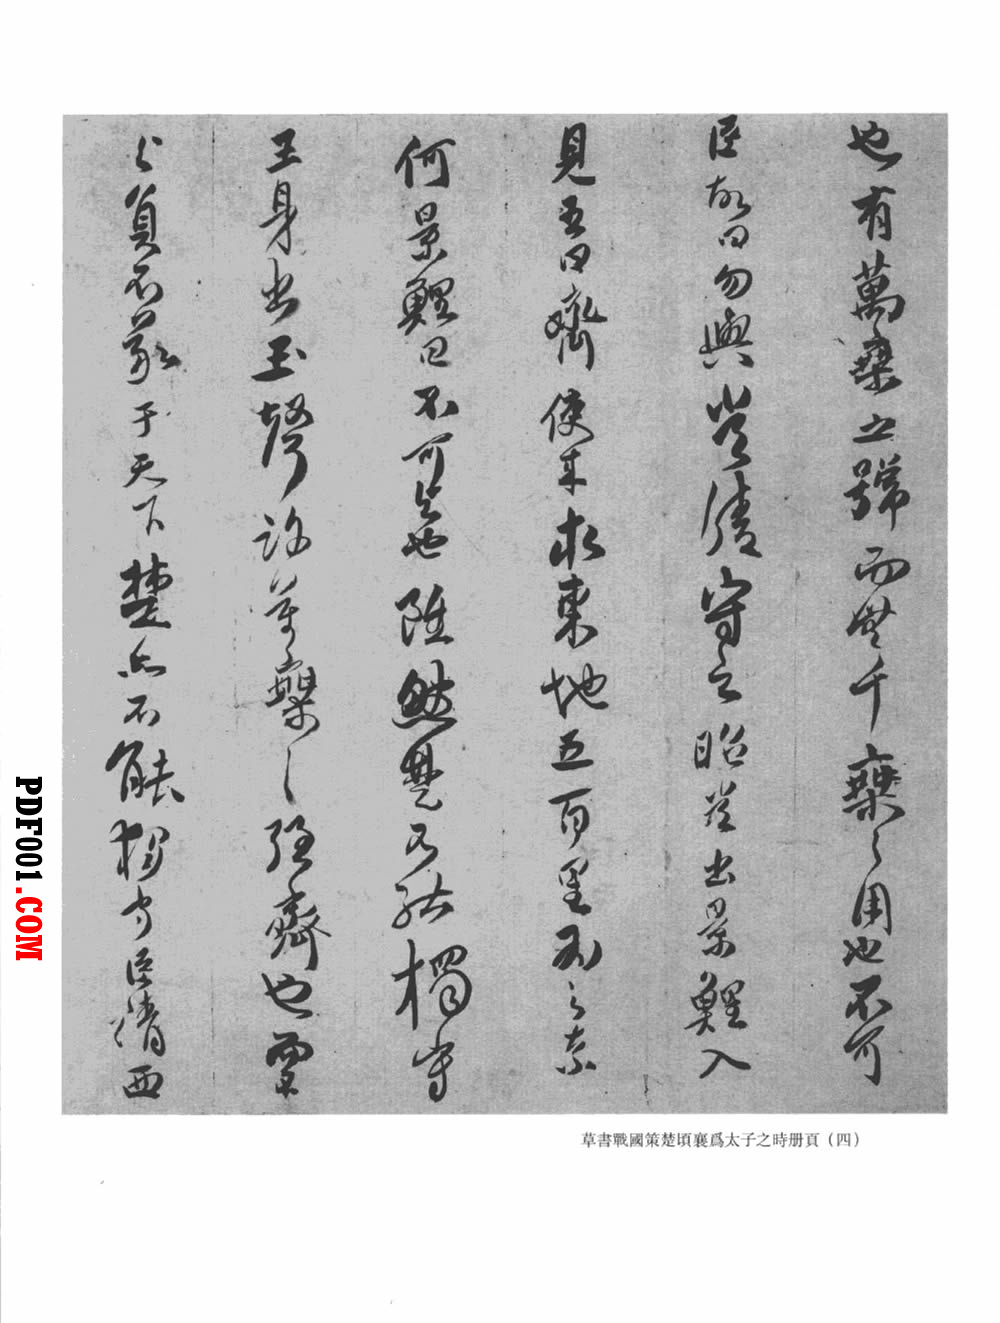 也有萬乘之號而無千乘之用也不可
臣故曰勿與常請守之昭常出景鯉入
見王曰齊使來求東地五百里爲之奈
何景鯉曰不可與也雖然楚不能獨守
王身出玉聲許萬乘之強齊也而不
與負不義于天下楚亦不能獨守臣請西
草書戰國策楚頃襄爲太子之時册頁（四）
PDF001.COM